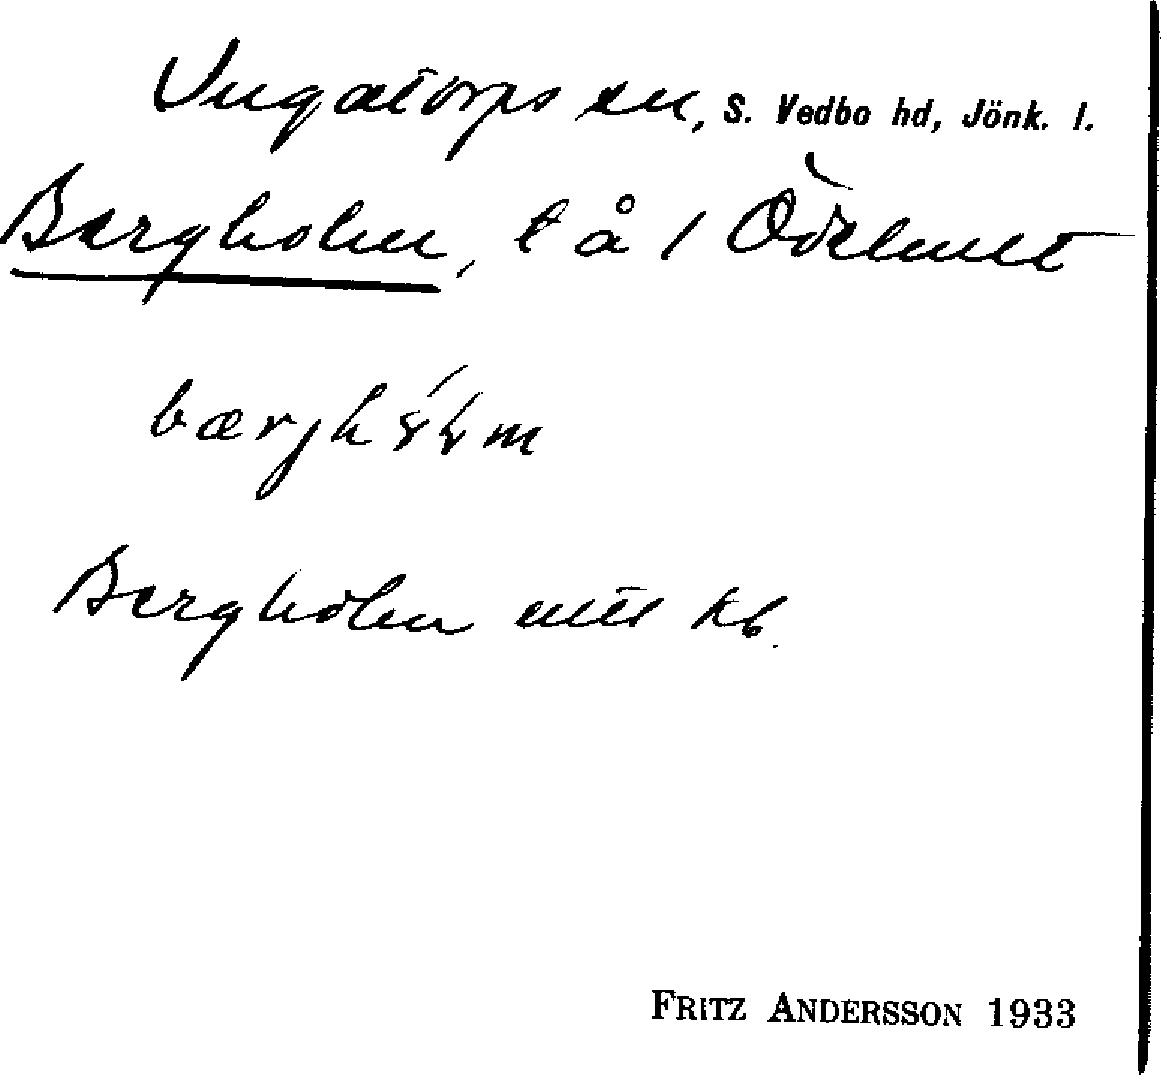 Ingatorps sn, S. Vedbo hd, Jönk. l.
Bergholm, t å / Ödelmelt
Bergholm mtl kb.
FRITZ ANDERSSON 1933